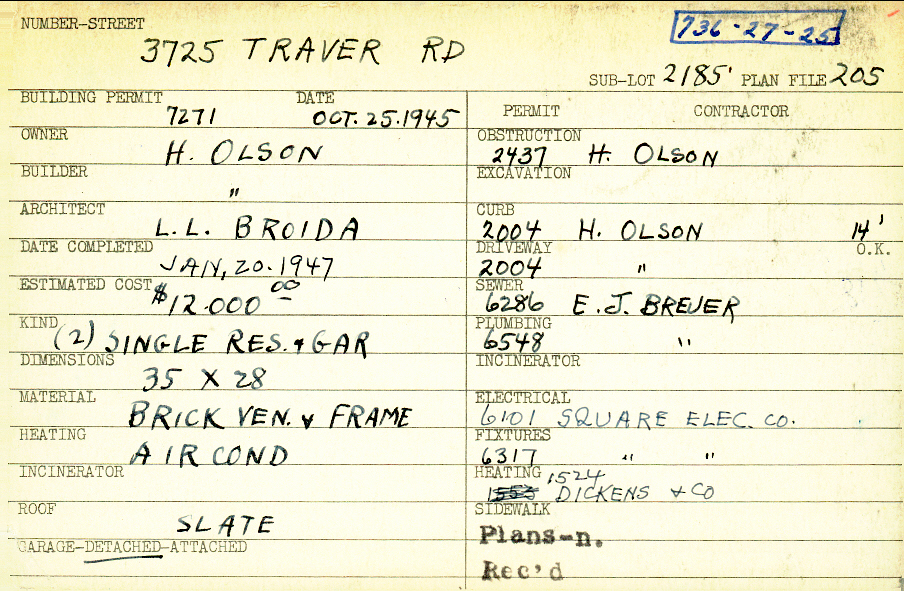 NUMBER-STREET
3725 TRAVER RD
736-27-25
SUB-LOT 2185' PLAN FILE 205
BUILDING PERMIT DATE
7271 OCT. 25. 1945
OWNER
H. OLSON
BUILDER
"
ARCHITECT
L.L. BROIDA
DATE COMPLETED
JAN, 20. 1947
ESTIMATED COST $12.000 00
KIND
(2) SINGLE RES. & GAR
DIMENSIONS
35 X 28
MATERIAL
BRICK VEN. & FRAME
HEATING
AIR COND
INCINERATOR
ROOF
SLATE
GARAGE-DETACHED-ATTACHED
PERMIT CONTRACTOR
OBSTRUCTION
2437 H. OLSON
EXCAVATION
CURB
2004 H. OLSON 14'
DRIVEWAY O.K.
2004 "
SEWER
6286 E.J. BREUER
PLUMBING
6548 "
INCINERATOR
ELECTRICAL
6101 SQUARE ELEC. CO.
FIXTURES
6317 " "
HEATING 1524
DICKENS & CO
SIDEWALK
Plans-n.
Rec'd